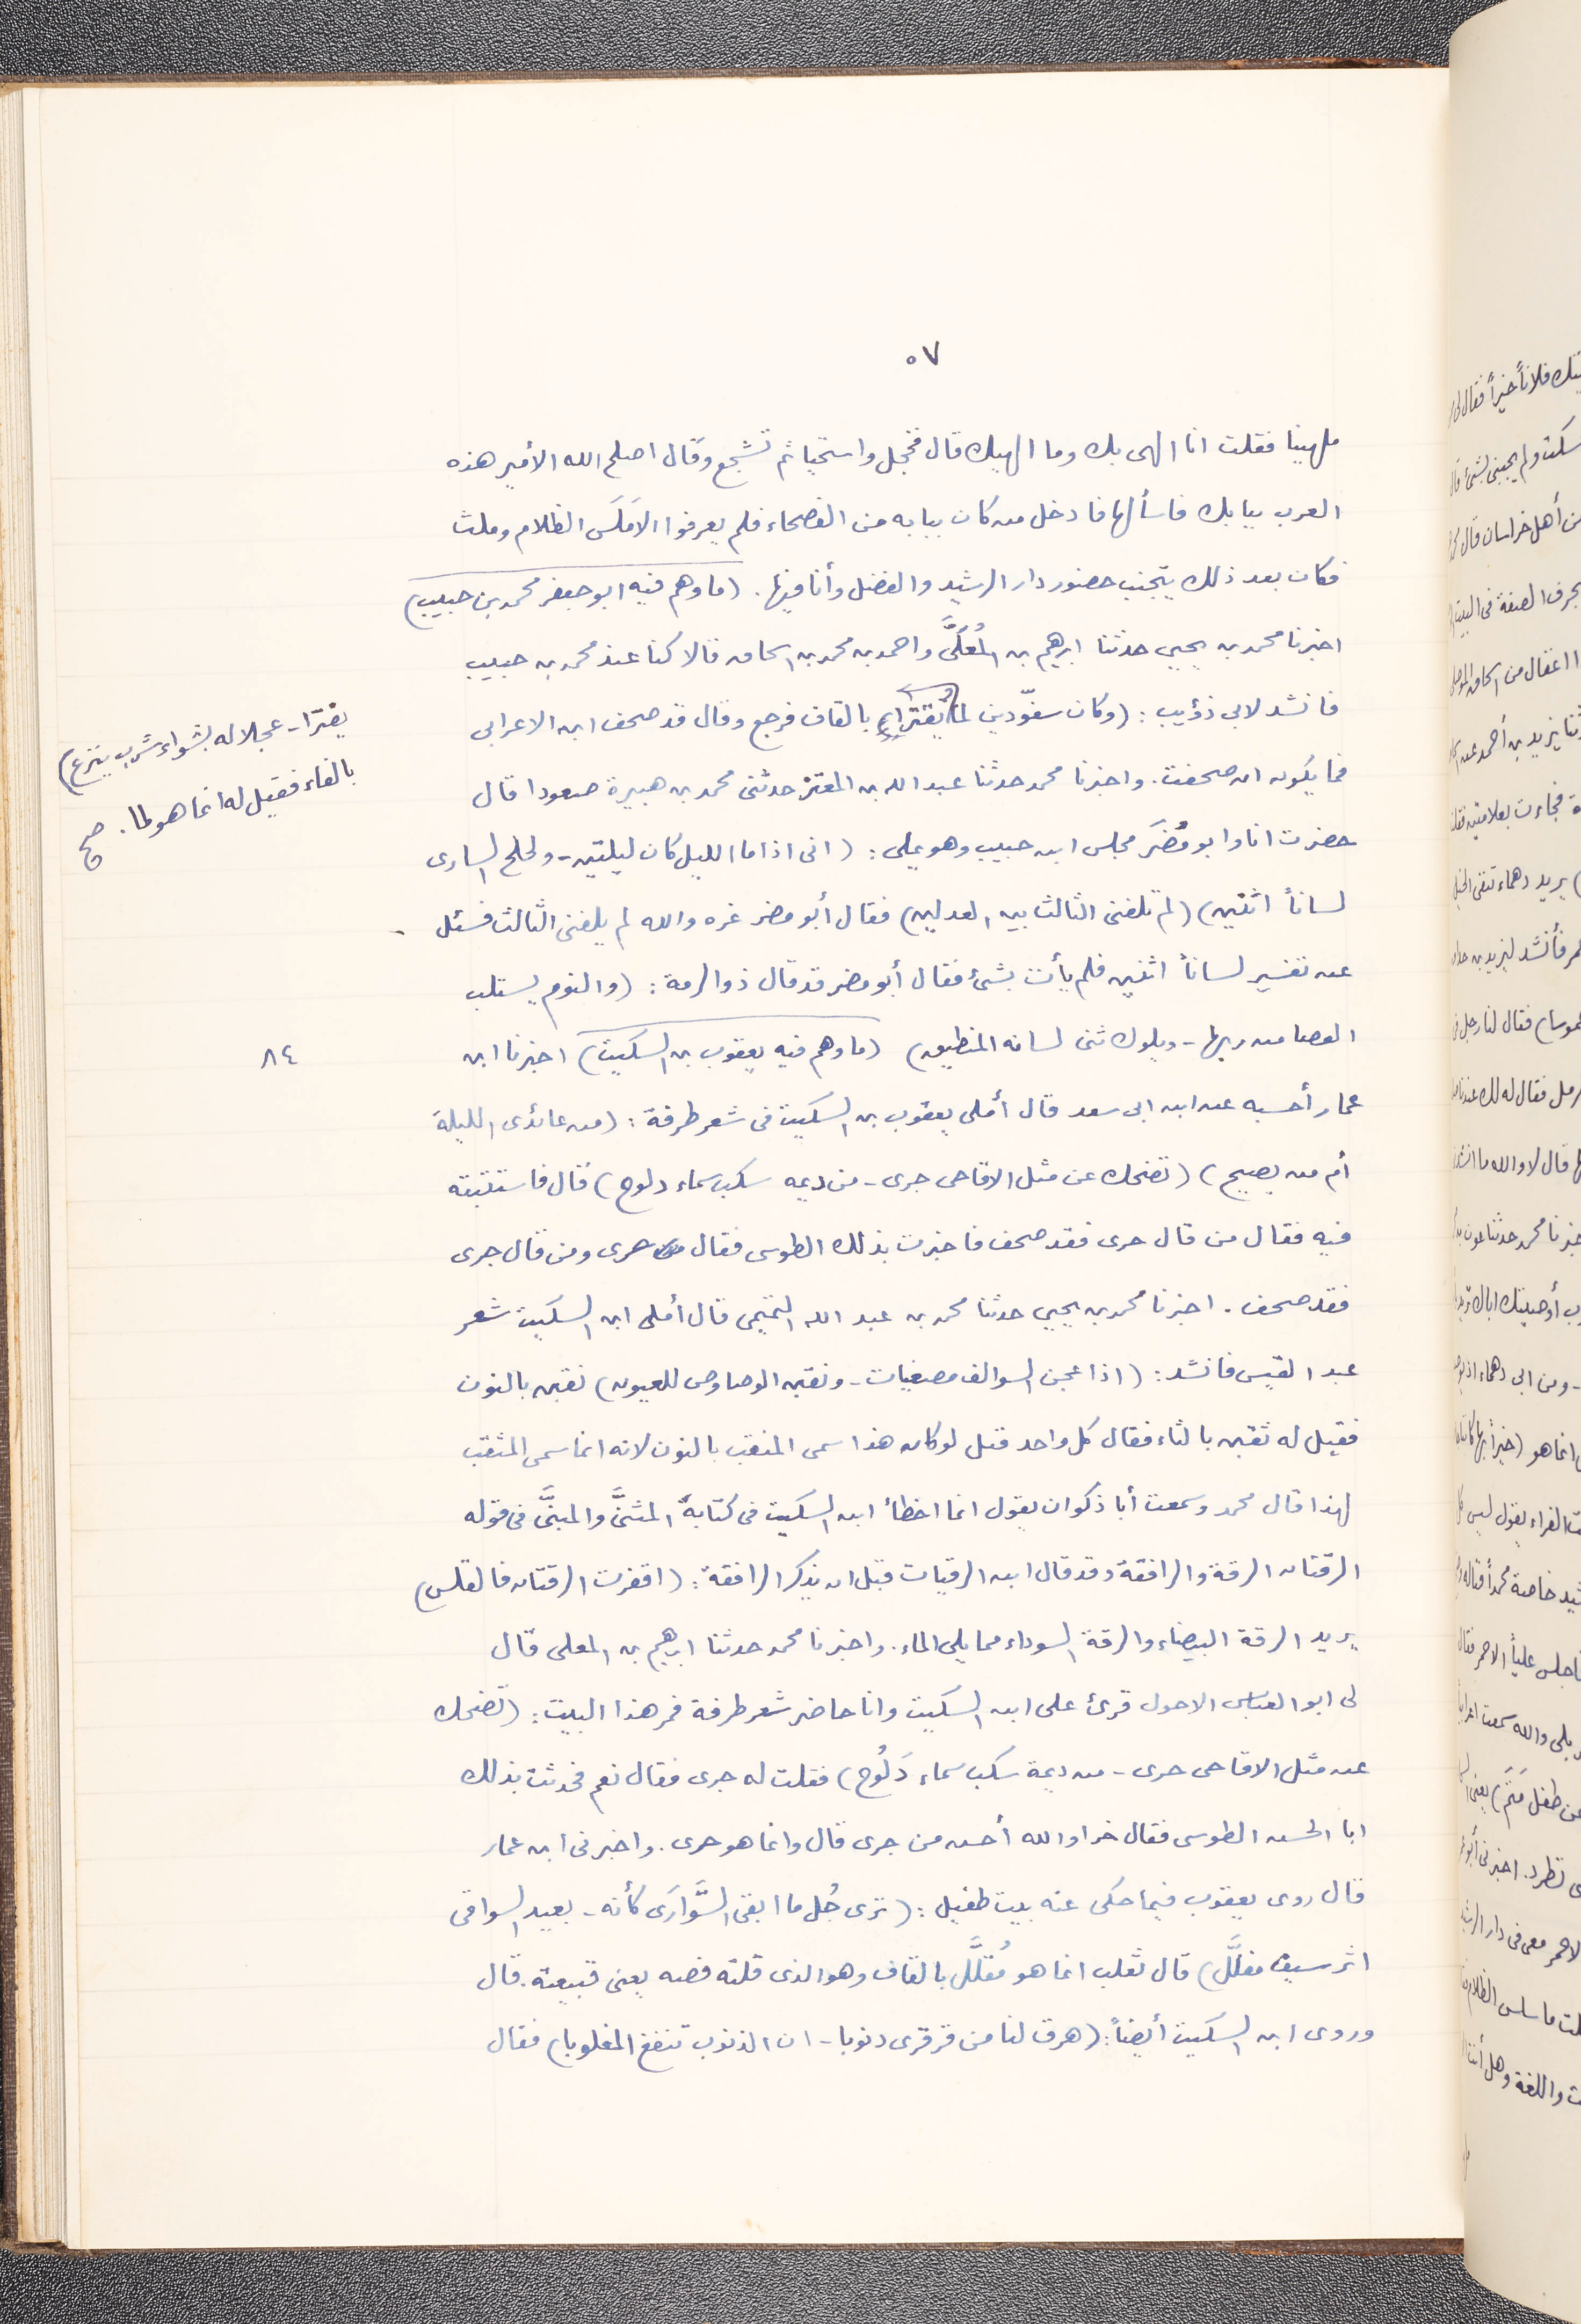 ٥٧
ملهينا فقلت انا الهى بك وما الهيك قال فخجل واستحيا ثم تشجع وقال اصلح الله الأمير هذه
العرب ببابك فاسألها فادخل من كان ببابه من الفصحاء فلم يعرفوا الا مَلَس الظلام وملث
فكان بعد ذلك يتجنب حضور دار الرشيد والفضل وأنا فيها. (ما وهم فيه ابو جعفر محمد بن حبيب)
اخبرنا محمد بن يحيى حدثنا ابرهيم بن المُعَلَّى واحمد بن محمد بن اسحاق قالا كنا عند محمد بن حبيب
فانشد لابى ذؤيب: (وكان سفّودين لما يُقترا بالقاف فرجع وقال قد صحف ابن الاعرابى
يقترا - عجلا له بشواء شرب ينزع)
بالفاء فقيل له انما هو لما. صح
فما يكون ان صحفت. واخبرنا محمد حدثنا عبد الله بن المعتز حدثنى محمد بن هبيرة صعودا قال
حضرت انا وابو مُضَر مجلس ابن حبيب وهو يملى: (انى اذا ما الليل كان ليلتين - ولجلج السارى
لساناً اثنين) (لم تلفنى الثالث بين العدلين) فقال أبو مضر غره والله لم يلفنى الثالث فسئل
عن تفسير لساناً اثنين فلم يأت بشئ فقال أبو مضر قد قال ذو الرمة: (والنوم يستلب
العصا من ربها - ويلوك ثنى لسانه المنطيق) (ما وهم فيه يعقوب بن السكيت) اخبرنا ابن
٨٤
عمار أحسبه عن ابن ابى سعد قال أملى يعقوب بن السكيت فى شعر طرفة: (من عائدى الليلة
أم من يصيح) (تضحك عن مثل الاقاحى جرى - من ديمه سكب سماء دلوح) قال فاستثبته
فيه فقال من قال حرى فقد صحف فاخبرت بذلك الطوسى فقال حرى ومن قال جرى
فقد صحف. اخبرنا محمد بن يحيى حدثنا محمد بن عبد الله التميمى قال أملى ابن السكيت شعر
عبد القيس فانشد: (اذا عجن السوالف مصغيات - ونقبن الوصاوص للعيون) نقبن بالنون
فقيل له ثقبن بالثاء فقال كل واحد قبل لو كان هذا سمى المنقب بالنون لانه انما سمى المثقب
لهذا قال محمد وسمعت أبا ذكوان يقول انما اخطأ ابن السكيت فى كتابه المثنَّى والمبنَّى فى قوله
الرقتان الرقة والرافقة وقد قال ابن الرقيات قبل ان يذكر الرافقة: (اقفرت الرقتان فالقلس)
يريد الرقة البيضاء والرقة السوداء مما يلى الماء. واخبرنا محمد حدثنا ابرهيم بن المعلى قال
لى ابو العباس الاحول قرئ على ابن السكيت وانا حاضر شعر طرفة فمر هذا البيت: (تضحك
عن مثل الاقاحى حرى - من ديمة سكب سماء دَلُوح) فقلت له جرى فقال نعم فحدثت بذلك
ابا الحسن الطوسى فقال خرا والله أحسن من جرى قال وانما هو حرى. واخبرنى ابن عمار
قال روى يعقوب فيما حكى عنه بيت طفيل: (ترى جُل ما ابقى السَّوارَى كأنه - بعيد السوافى
اثر سيف مفلَّل) قال ثعلب انما هو مُقلَّل بالقاف وهو الذى قلته فضه يعنى قبيعته. قال
وروى ابن السكيت أيضاً: (هرق لنا من قرقرى ذنوبا - ان الذنوب تنفع المغلوبا) فقال